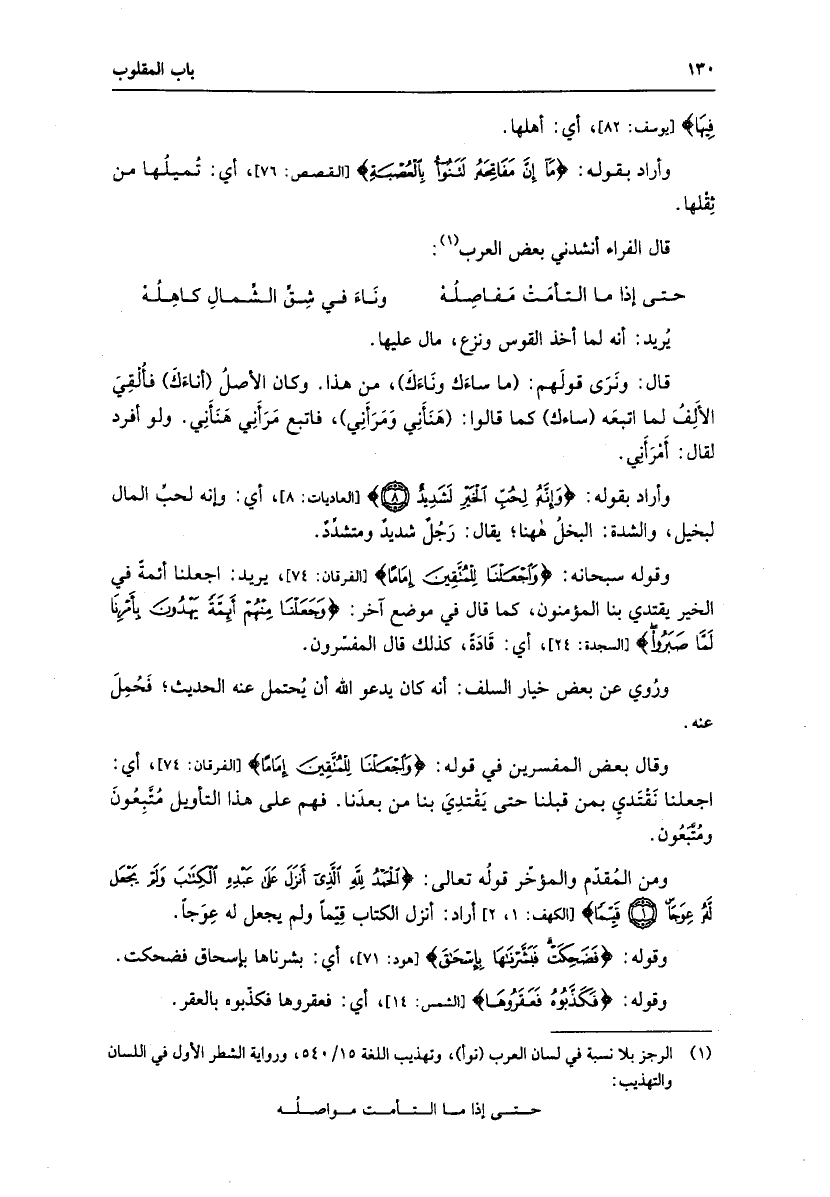 ١٣٠ باب المقلوب
فِيهَا﴾ [يوسف: ٨٢]، أي: أهلها.
وأراد بقوله: ﴿مَآ إِنَّ مَفَاتِحَهُۥ لَتَنُوٓأُ بِٱلْعُصْبَةِ﴾ [القصص: ٧٦]، أي: تُميلُها من
ثِقْلها.
قال الفراء أنشدني بعض العرب(١):
حتى إذا ما التأمَتْ مَفاصِلُهْ ونَاءَ في شِقِّ الشِّمالِ كاهِلُهْ
يُريد: أنه لما أخذ القوس ونزع، مال عليها.
قال: ونَرَى قولَهم: (ما ساءَك ونَاءَكَ)، من هذا. وكان الأصلُ (أناءَكَ) فأُلْقِيَ
الأَلِفُ لما اتبعَه (ساءك) كما قالوا: (هَنَأَني وَمَرَأَني)، فاتبع مَرَأَني هَنَأَني. ولو أفرد
لقال: أَمْرَأَني.
وأراد بقوله: ﴿وَإِنَّهُۥ لِحُبِّ ٱلْخَيْرِ لَشَدِيدٌ ٨﴾ [العاديات: ٨]، أي: وإنه لحبِّ المال
لبخيل، والشدة: البخلُ هٰهنا؛ يقال: رَجُلٌ شديدٌ ومتشدِّدٌ.
وقوله سبحانه: ﴿وَٱجْعَلْنَا لِلْمُتَّقِينَ إِمَامًا﴾ [الفرقان: ٧٤]، يريد: اجعلنا أئمةً في
الخير يقتدي بنا المؤمنون، كما قال في موضع آخر: ﴿وَجَعَلْنَا مِنْهُمْ أَئِمَّةً يَهْدُونَ بِأَمْرِنَا
لَمَّا صَبَرُوا۟﴾ [السجدة: ٢٤]، أي: قَادَةً، كذلك قال المفسّرون.
ورُوي عن بعض خيار السلف: أنه كان يدعو الله أن يُحتمل عنه الحديث؛ فَحُمِلَ
عنه.
وقال بعض المفسرين في قوله: ﴿وَٱجْعَلْنَا لِلْمُتَّقِينَ إِمَامًا﴾ [الفرقان: ٧٤]، أي:
اجعلنا نَقْتَدي بمن قبلنا حتى يَقْتدِيَ بنا من بعدَنا. فهم على هذا التأويل مُتَّبِعُونَ
ومُتَّبَعُون.
ومن المُقدّم والمؤخّر قولُه تعالى: ﴿ٱلْحَمْدُ لِلَّهِ ٱلَّذِىٓ أَنزَلَ عَلَىٰ عَبْدِهِ ٱلْكِتَٰبَ وَلَمْ يَجْعَل
لَّهُۥ عِوَجَاۜ ١ قَيِّمًا﴾ [الكهف: ١، ٢] أراد: أنزل الكتاب قيِّماً ولم يجعل له عِوَجاً.
وقوله: ﴿فَضَحِكَتْ فَبَشَّرْنَٰهَا بِإِسْحَٰقَ﴾ [هود: ٧١]، أي: بشرناها بإسحاق فضحكت.
وقوله: ﴿فَكَذَّبُوهُ فَعَقَرُوهَا﴾ [الشمس: ١٤]، أي: فعقروها فكذّبوه بالعقر.
(١) الرجز بلا نسبة في لسان العرب (نوأ)، وتهذيب اللغة ١٥/٥٤٠، ورواية الشطر الأول في اللسان
والتهذيب:
حتى إذا ما التأمت مواصلُه